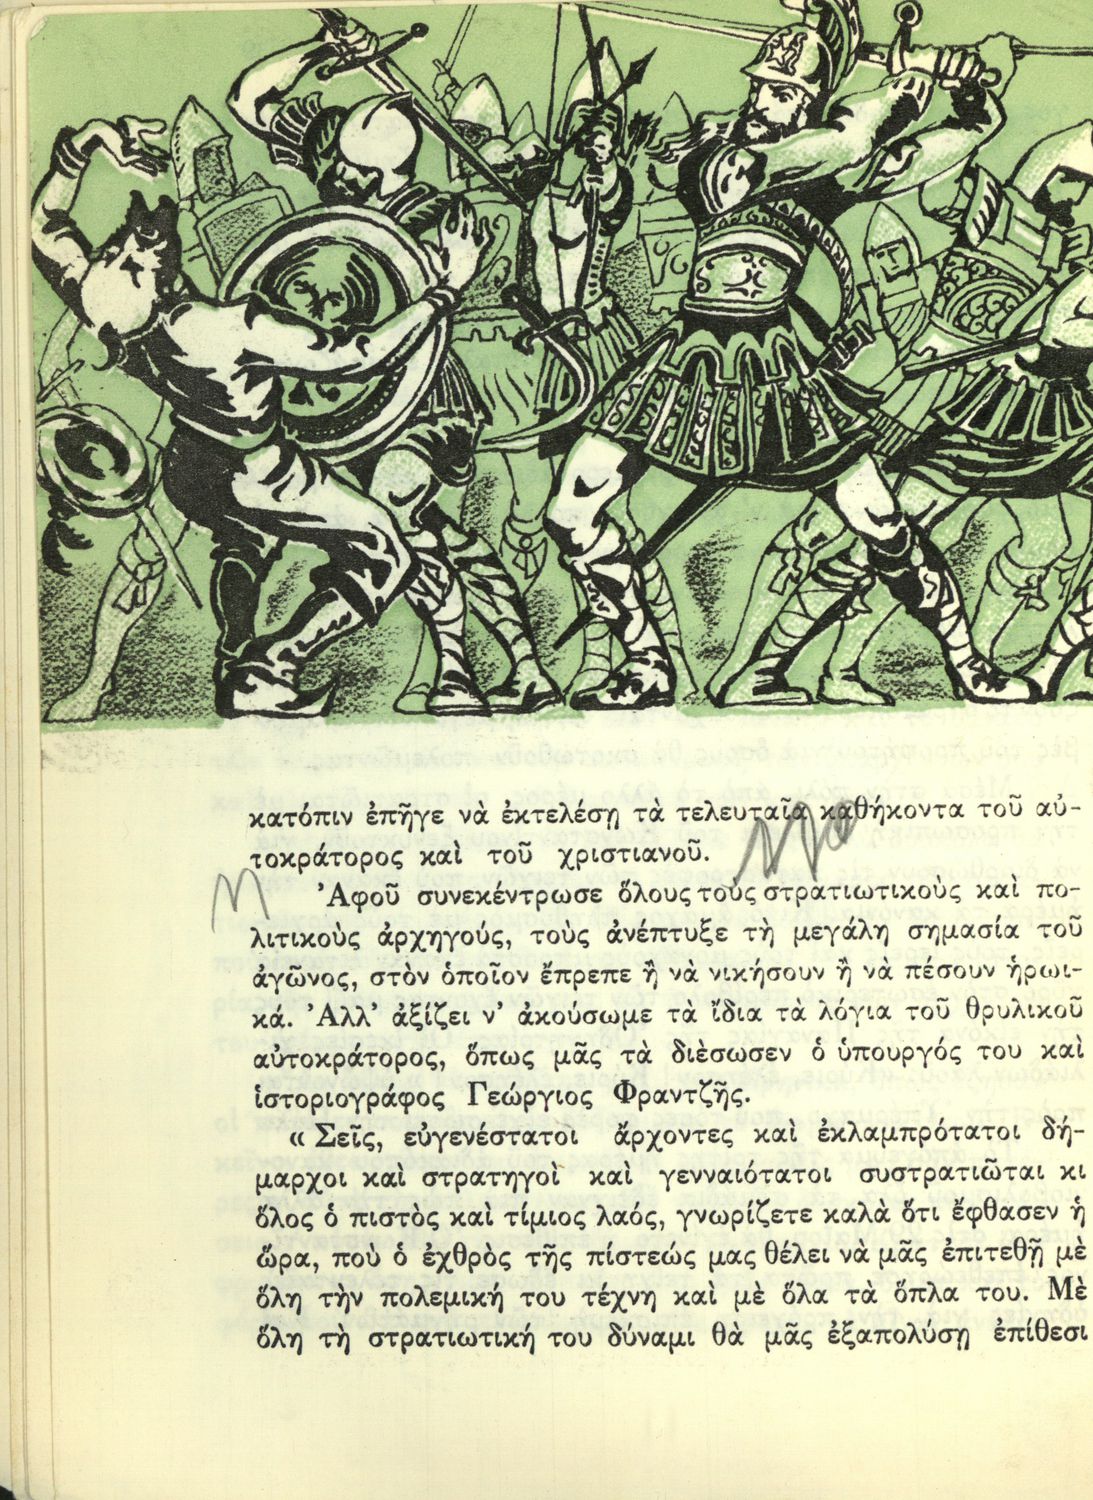 κατόπιν ἐπῆγε νὰ ἐκτελέσῃ τὰ τελευταῖα καθήκοντα τοῦ αὐ-
τοκράτορος καὶ τοῦ χριστιανοῦ.
Ἀφοῦ συνεκέντρωσε ὅλους τοὺς στρατιωτικοὺς καὶ πο-
λιτικοὺς ἀρχηγούς, τοὺς ἀνέπτυξε τὴ μεγάλη σημασία τοῦ
ἀγῶνος, στὸν ὁποῖον ἔπρεπε ἢ νὰ νικήσουν ἢ νὰ πέσουν ἡρωι-
κά. Ἀλλ' ἀξίζει ν' ἀκούσωμε τὰ ἴδια τὰ λόγια τοῦ θρυλικοῦ
αὐτοκράτορος, ὅπως μᾶς τὰ διέσωσεν ὁ ὑπουργός του καὶ
ἱστοριογράφος Γεώργιος Φραντζῆς.
« Σεῖς, εὐγενέστατοι ἄρχοντες καὶ ἐκλαμπρότατοι δή-
μαρχοι καὶ στρατηγοὶ καὶ γενναιότατοι συστρατιῶται κι
ὅλος ὁ πιστὸς καὶ τίμιος λαός, γνωρίζετε καλὰ ὅτι ἔφθασεν ἡ
ὥρα, ποὺ ὁ ἐχθρὸς τῆς πίστεώς μας θέλει νὰ μᾶς ἐπιτεθῇ μὲ
ὅλη τὴν πολεμική του τέχνη καὶ μὲ ὅλα τὰ ὅπλα του. Μὲ
ὅλη τὴ στρατιωτική του δύναμι θὰ μᾶς ἐξαπολύσῃ ἐπίθεσι